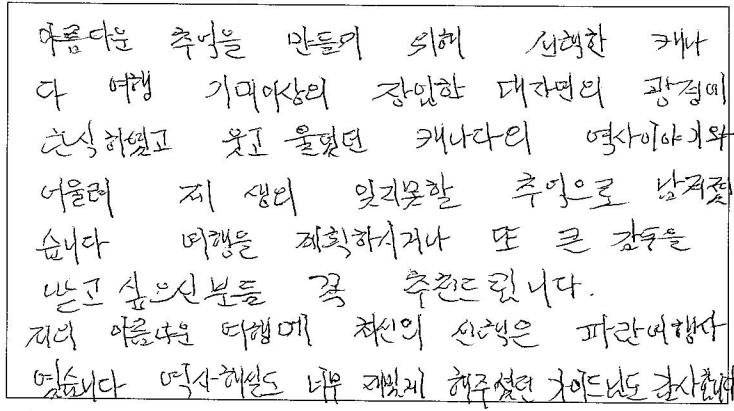 아름다운 추억을 만들기 위해 선택한 캐나
다 여행 기대이상의 장엄한 대자연의 광경에
탄식하였고 웃고 울렸던 캐나다의 역사이야기와
어울려 제 생의 잊지못할 추억으로 남겨졌
습니다 여행을 계획하시거나 또 큰 감동을
받고 싶으신분들 꼭 추천드립니다.
저의 아름다운 여행에 최선의 선택은 파란여행사
였습니다 역사해설도 너무 재밌게 해주셨던 가이드님도 감사합니다